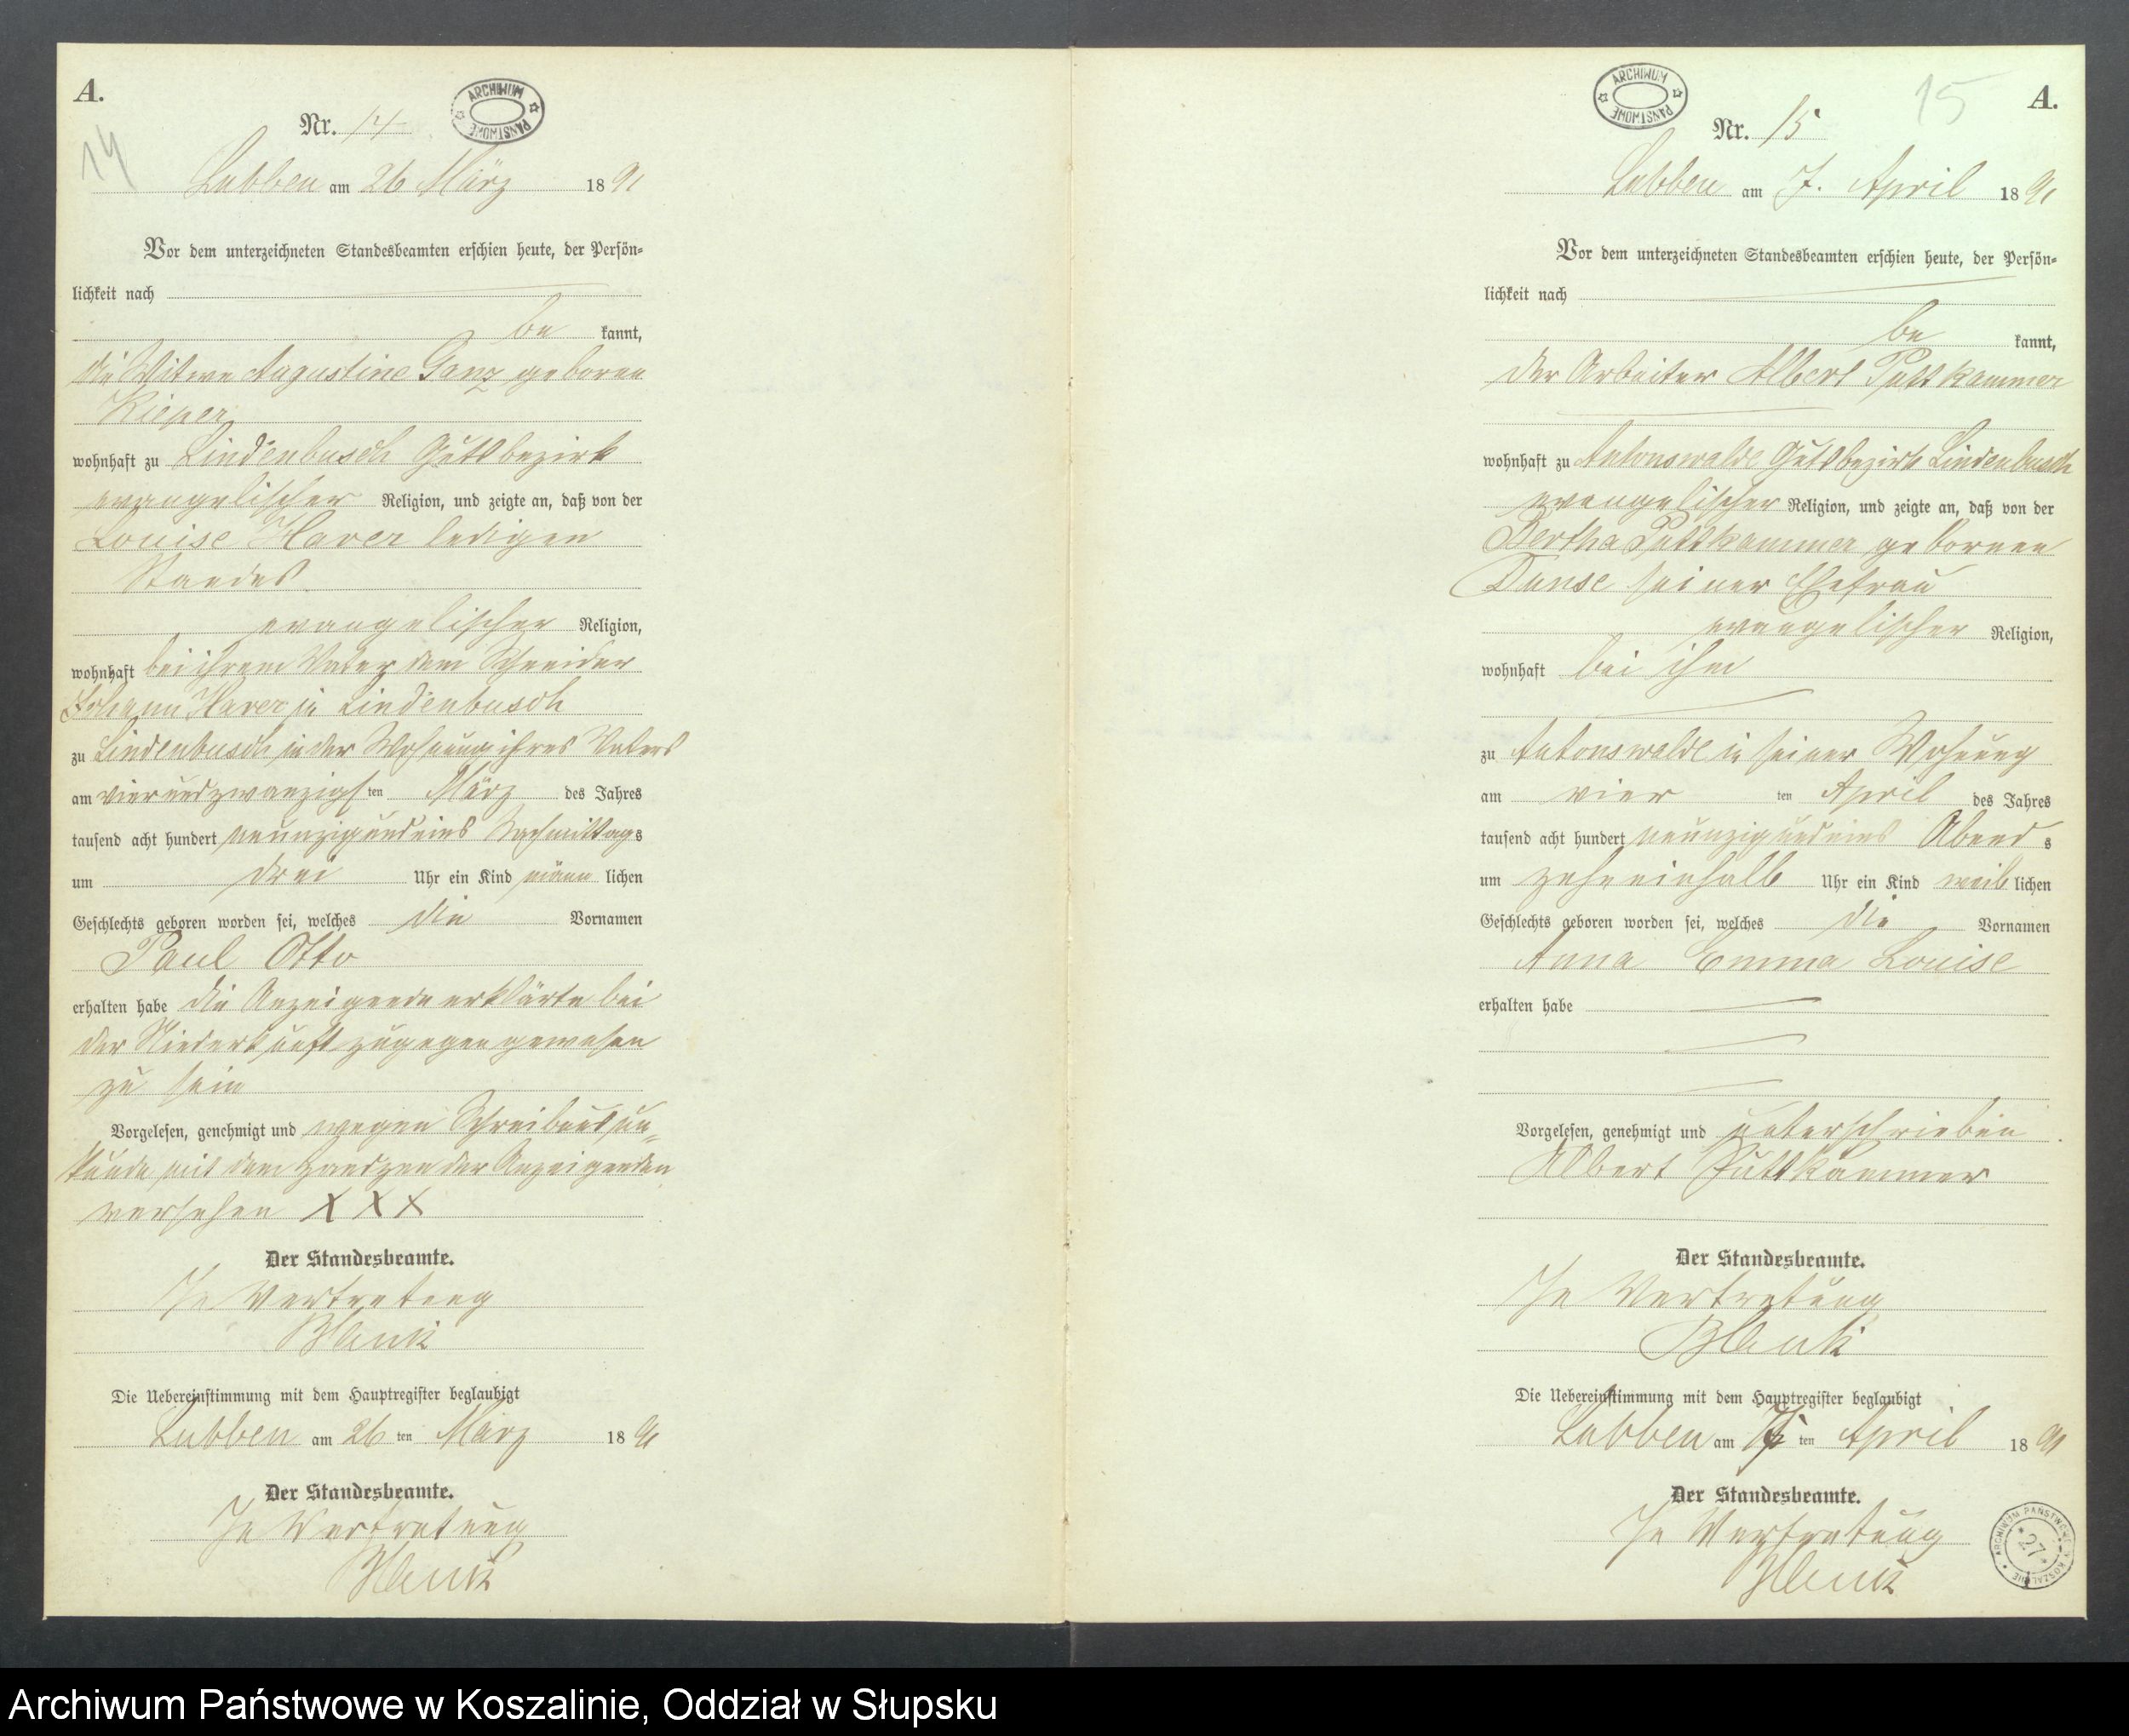 A.
14
Nr. 14
ARCHIWUM PAŃSTWOWE
Lubben am 26 März 1891
Vor dem unterzeichneten Standesbeamten erschien heute, der Persön-
lichkeit nach
be kannt,
die Witwe Augustine Ganz geboren
Rieper
wohnhaft zu Lindenbusch Gutsbezirk
evangelischer Religion, und zeigte an, daß von der
Louise Haver ledigen
Standes
evangelischer Religion,
wohnhaft bei ihrem Vater dem Schneider
Johann Haver in Lindenbusch
zu Lindenbusch in der Wohnung ihres Vaters
am vierundzwanzigs ten März des Jahres
tausend acht hundert neunzig und eins Nachmittag s
um drei Uhr ein Kind männ lichen
Geschlechts geboren worden sei, welches die Vornamen
Paul Otto
erhalten habe die Anzeigende erklärte bei
der Niederkunft zugegen gewesen
zu sein
Vorgelesen, genehmigt und wegen Schreibensun-
kunde mit dem Handzeichen der Anzeigenden
versehen XXX
Der Standesbeamte.
In Vertretung
Blank
Die Uebereinstimmung mit dem Hauptregister beglaubigt
Lubben am 26 ten März 1891
Der Standesbeamte.
In Vertretung
Blank
15
A.
ARCHIWUM PAŃSTWOWE
Nr. 15
Lubben am 7. April 1891
Vor dem unterzeichneten Standesbeamten erschien heute, der Persön-
lichkeit nach
be kannt,
der Arbeiter Albert Puttkammer
wohnhaft zu Antonswalde Gutsbezirk Lindenbusch
evangelischer Religion, und zeigte an, daß von der
Bertha Puttkammer gebornen
Danse seiner Ehefrau
evangelischer Religion,
wohnhaft bei ihm
zu Antonswalde in seiner Wohnung
am vier ten April des Jahres
tausend acht hundert neunzig und eins Abend s
um zehneinhalb Uhr ein Kind weib lichen
Geschlechts geboren worden sei, welches die Vornamen
Anna Emma Louise
erhalten habe
Vorgelesen, genehmigt und unterschrieben
Albert Puttkammer
Der Standesbeamte.
In Vertretung
Blank
Die Uebereinstimmung mit dem Hauptregister beglaubigt
Lubben am 7 ten April 1891
Der Standesbeamte.
In Vertretung
Blank
ARCHIWUM PAŃSTWOWE W KOSZALINIE
27
Archiwum Państwowe w Koszalinie, Oddział w Słupsku